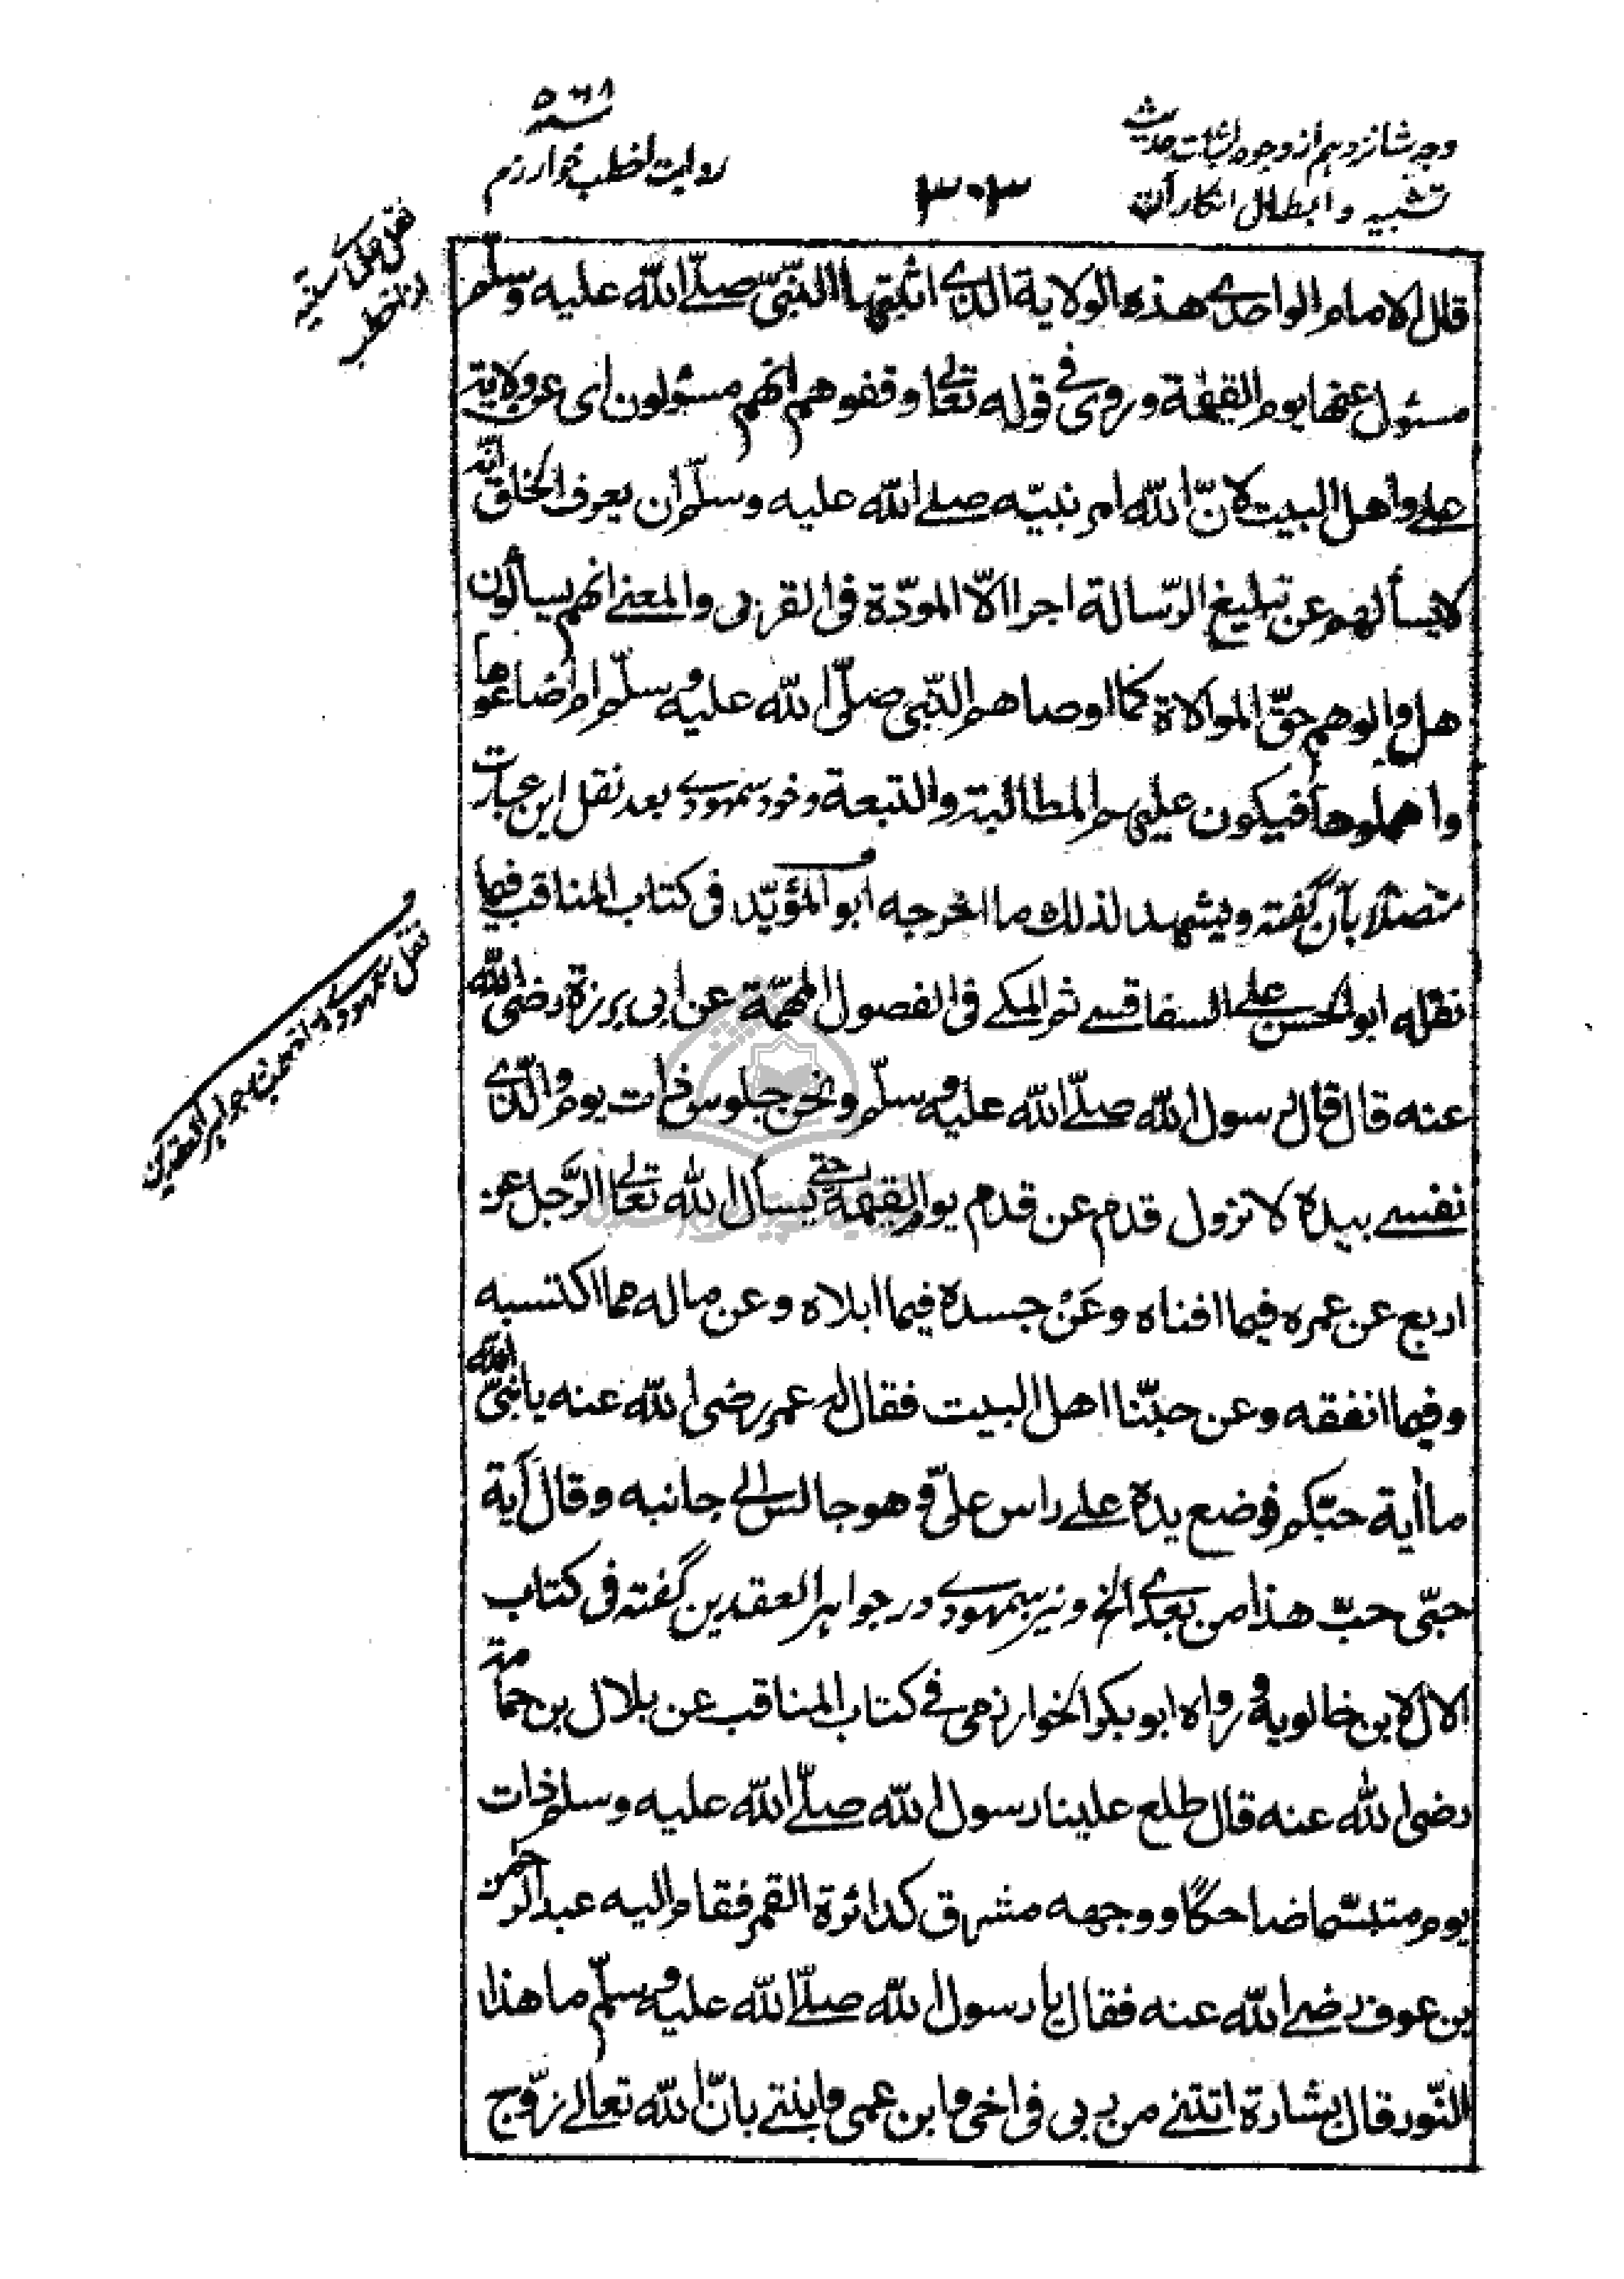 وجہ شانزدهم از وجوه اثبات حدیث
تشبیه و ابطال انکار آن
۳۰۳
۵۶۸
روایت اخطب خوارزم
نقل علمای سنیه
از اخطب
قال الامام الواحدی هذه الولایة الذی اثبتها النّبیّ صلّے اللّه علیه وسلّم
مسئول عنها یوم القیمة وروی فی قوله تعالی وقفوهم انهم مسئولون ای عن ولایة
علے واهل البیت لانّ اللّه امر نبیّه صلے اللّه علیه وسلّم ان یعرف الخلق انّه
لا یسألهم عن تبلیغ الرّسالة اجرا الّا المودّة فی القربی والمعنے انهم یسألون
هل والوهم حقّ الموالاة کما اوصاهم النّبی صلّی اللّه علیه وسلّم ام اضاعوها
واهملوها فیکون علیهم المطالبة والتبعة وخود سمهودی بعد نقل این عبارت
متصلا بآن گفته ویشهد لذلك ما اخرجه ابو المؤیّد فی کتاب المناقب فیما
نقله ابو الحسن علے السفاقسے ثم المکے فی الفصول المهمّة عن ابی برزة رضی اللّه
عنه قال قال رسول اللّه صلّے اللّه علیه وسلّم ونحن جلوس ذات یوم والّذی
نفسے بیده لا تزول قدم عن قدم یوم القیمة حتے یسأل اللّه تعالی الرّجل عن
اربع عن عمره فیما افناه وعَنْ جسده فیما ابلاه وعن ماله مما اکتسبه
وفیما انفقه وعن حبّنا اهل البیت فقال له عمر رضی اللّه عنه یا نبیّ اللّه
ما أیة حبّکم فوضع یده علے راس علیّ وهو جالس الے جانبه وقال آیة
حبّی حبّ هذا من بعدی الخ ونیز سمهودی در جواهر العقدین گفته فی کتاب
الال لابن خالویه ورواه ابو بکر الخوارزمی فے کتاب المناقب عن بلال بن حمامة
رضی اللّه عنه قال طلع علینا رسول اللّه صلّے اللّه علیه وسلم ذات
یوم متبسّما ضاحکًا ووجهه مشرق کدائرة القمر فقام الیه عبد الرحمن
بن عوف رضے اللّه عنه فقال یا رسول اللّه صلّے اللّه علیه وسلّم ما هذا
النّور قال بشارة اتتنے من ربی فی اخی وابن عمی وابنتے بانّ اللّه تعالے زوّج
نقل سمهودی از اخطب در جواهر العقدین